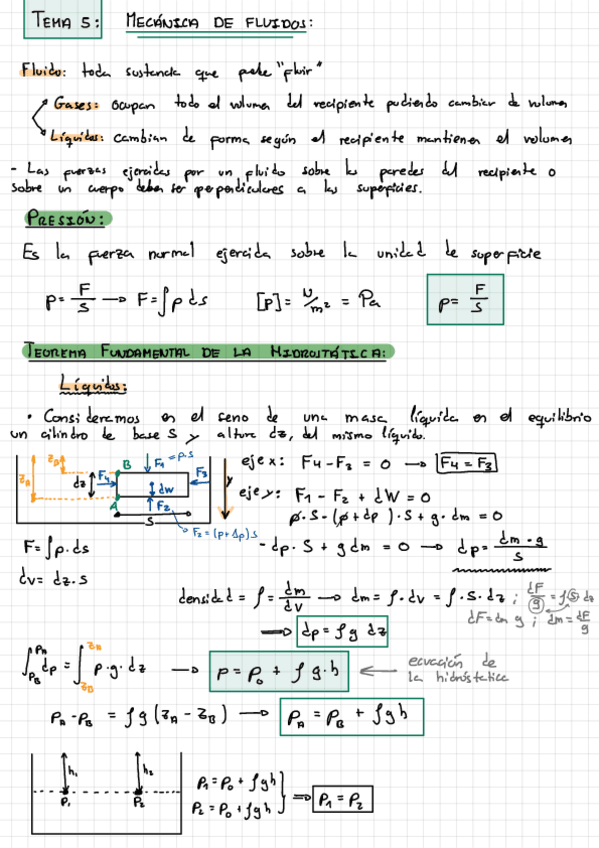 TEMA 5: MECÁNICA DE FLUIDOS:
Fluido: toda sustancia que puede "fluir"
Gases: ocupan todo el volumen del recipiente pudiendo cambiar de volumen
Líquidos: cambian de forma según el recipiente mantienen el volumen
- Las fuerzas ejercidas por un fluido sobre las paredes del recipiente o
sobre un cuerpo deben ser perpendiculares a las superficies.
PRESIÓN:
Es la fuerza normal ejercida sobre la unidad de superficie
p = F/S → F = ∫ p ds [p] = N/m² = Pa p = F/S
TEOREMA FUNDAMENTAL DE LA HIDROSTÁTICA:
Líquidos:
• Consideremos en el seno de una masa líquida en el equilibrio
un cilindro de base S y altura dz, del mismo líquido.
z_A z_B dz F₄ B A F₁ = p.s F₃ dw F₂ S y
F₂ = (p+Δp).s
eje x: F₄ - F₃ = 0 → F₄ = F₃
eje y: F₁ - F₂ + dW = 0
p.S - (p + dp).S + g.dm = 0
F = ∫ p.ds - dp.S + g dm = 0 → dp = dm.g/S
dv = dz.S
densidad = ρ = dm/dv → dm = ρ.dv = ρ.S.dz ; dF/g = ρ S dz
dF = dm g ; dm = dF/g
⇒ dp = ρ g dz
∫ p_B p_A dp = ∫ z_B z_A ρ.g.dz → p = p₀ + ρ g.h ← ecuación de
la hidrostática
p_A - p_B = ρ g (z_A - z_B) → p_A = p_B + ρgh
h₁ h₂
P₁ P₂
P₁ = P₀ + ρgh
P₂ = P₀ + ρgh
⇒ P₁ = P₂